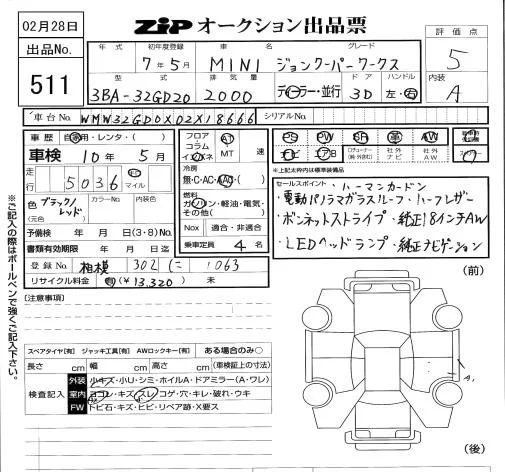 02月28日
ZIP オークション出品票
出品No.
511
年式 初年度登録 車名 グレード
7年5月 MINI ジョンクーパーワークス
型式 排気量 ドア ハンドル
3BA-32GD20 2000 ディーラー・並行 3D 左・右
評価点
5
内装
A
車台No. WMW32GD0X02X18666 シリアルNo.
車歴 自家用・レンタ・( )
車検 10年 5月
走行 5036 km マイル
色 ブラック/レッド カラーNo. 内装色
(元色)
予備検 年 月 日(3・8)No.
書類有効期限 年 月 日迄
登録No. 相模 302 に 1063
リサイクル料金 有(¥13,320) 未
フロア
コラム
インパネ
AT
MT 速
冷房
無・C・AC・AAC
燃料
ガソリン・軽油・電気・
その他( )
Nox 適合・非適合
乗車定員 4名
PS PW SR 革 AW
ナビ エアB
社外ナビ 社外AW
※上記太枠が標準装備品
セールスポイント・ハーマンカードン
・電動パノラマガラスルーフ・ハーフレザー
・ボンネットストライプ・純正18インチAW
・LEDヘッドランプ・純正ナビゲーション
※ご記入の際はボールペンで強くご記入下さい。
[注意事項]
スペアタイヤ[有] ジャッキ工具[有] AWロックキー[有] ある場合のみ〇
長さ cm 幅 cm 高さ cm (車検証上の寸法)
検査記入
外装 小キズ・小U・シミ・ホイルA・ドアミラー(A・ワレ)
室内 ヨゴレ・キズ・スレ・コゲ・穴・キレ・破れ・ウキ
FW トビ石・キズ・ヒビ・リペア跡・X要ス
(前)
A
(後)